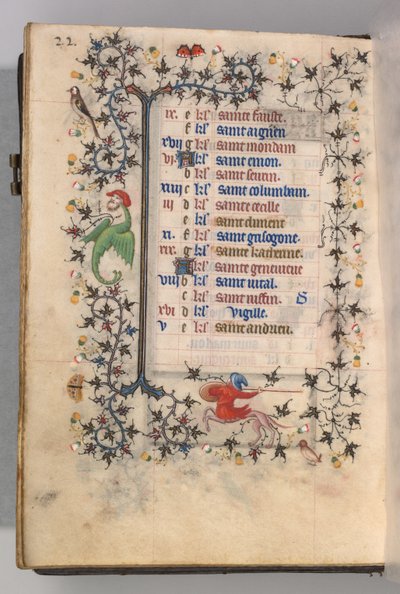 22.
ix. e kl' sainte fauste.
f kl' saint aignien
xvij g kl' saint mondain
vj. A kl' saint emon.
b kl' saint seurin.
xiiij c kl' saint columbain.
iij d kl' sainte cecille
e kl' saint climent
xi. f kl' saint grisogone.
xix. g kl' sainte katerine.
A kl' sainte geneuieue
viij b kl' saint vital.
c kl' saint ruffin.
xvi d kl' Vigille.
v e kl' saint andrieu.